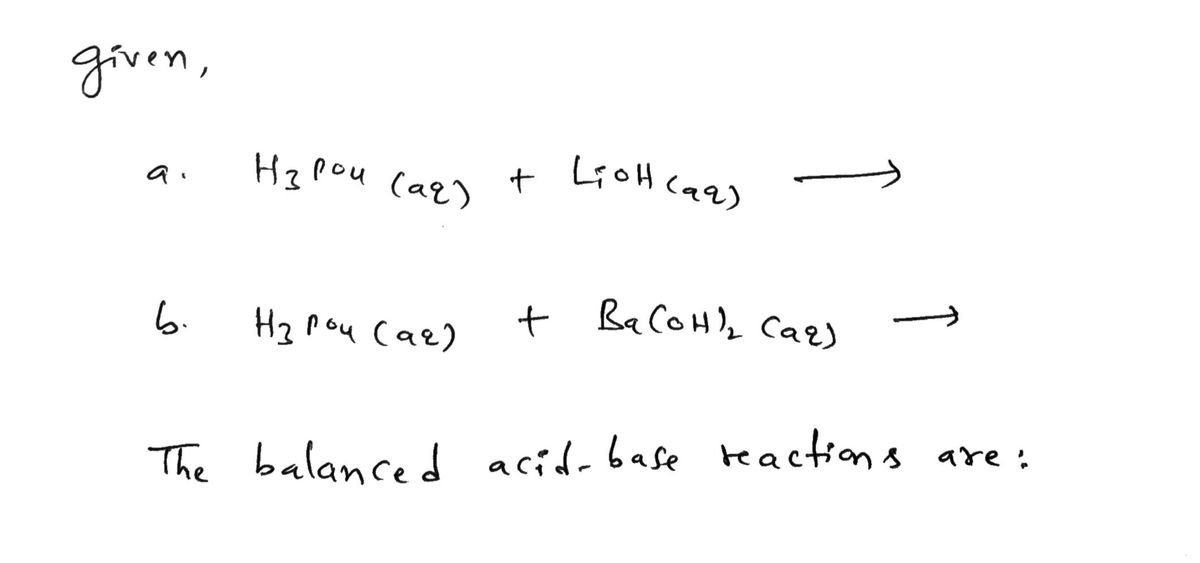 given,
a. H3PO4 (aq) + LiOH (aq) ⟶
b. H3PO4 (aq) + Ba(OH)2 (aq) ⟶
The balanced acid-base reactions are: